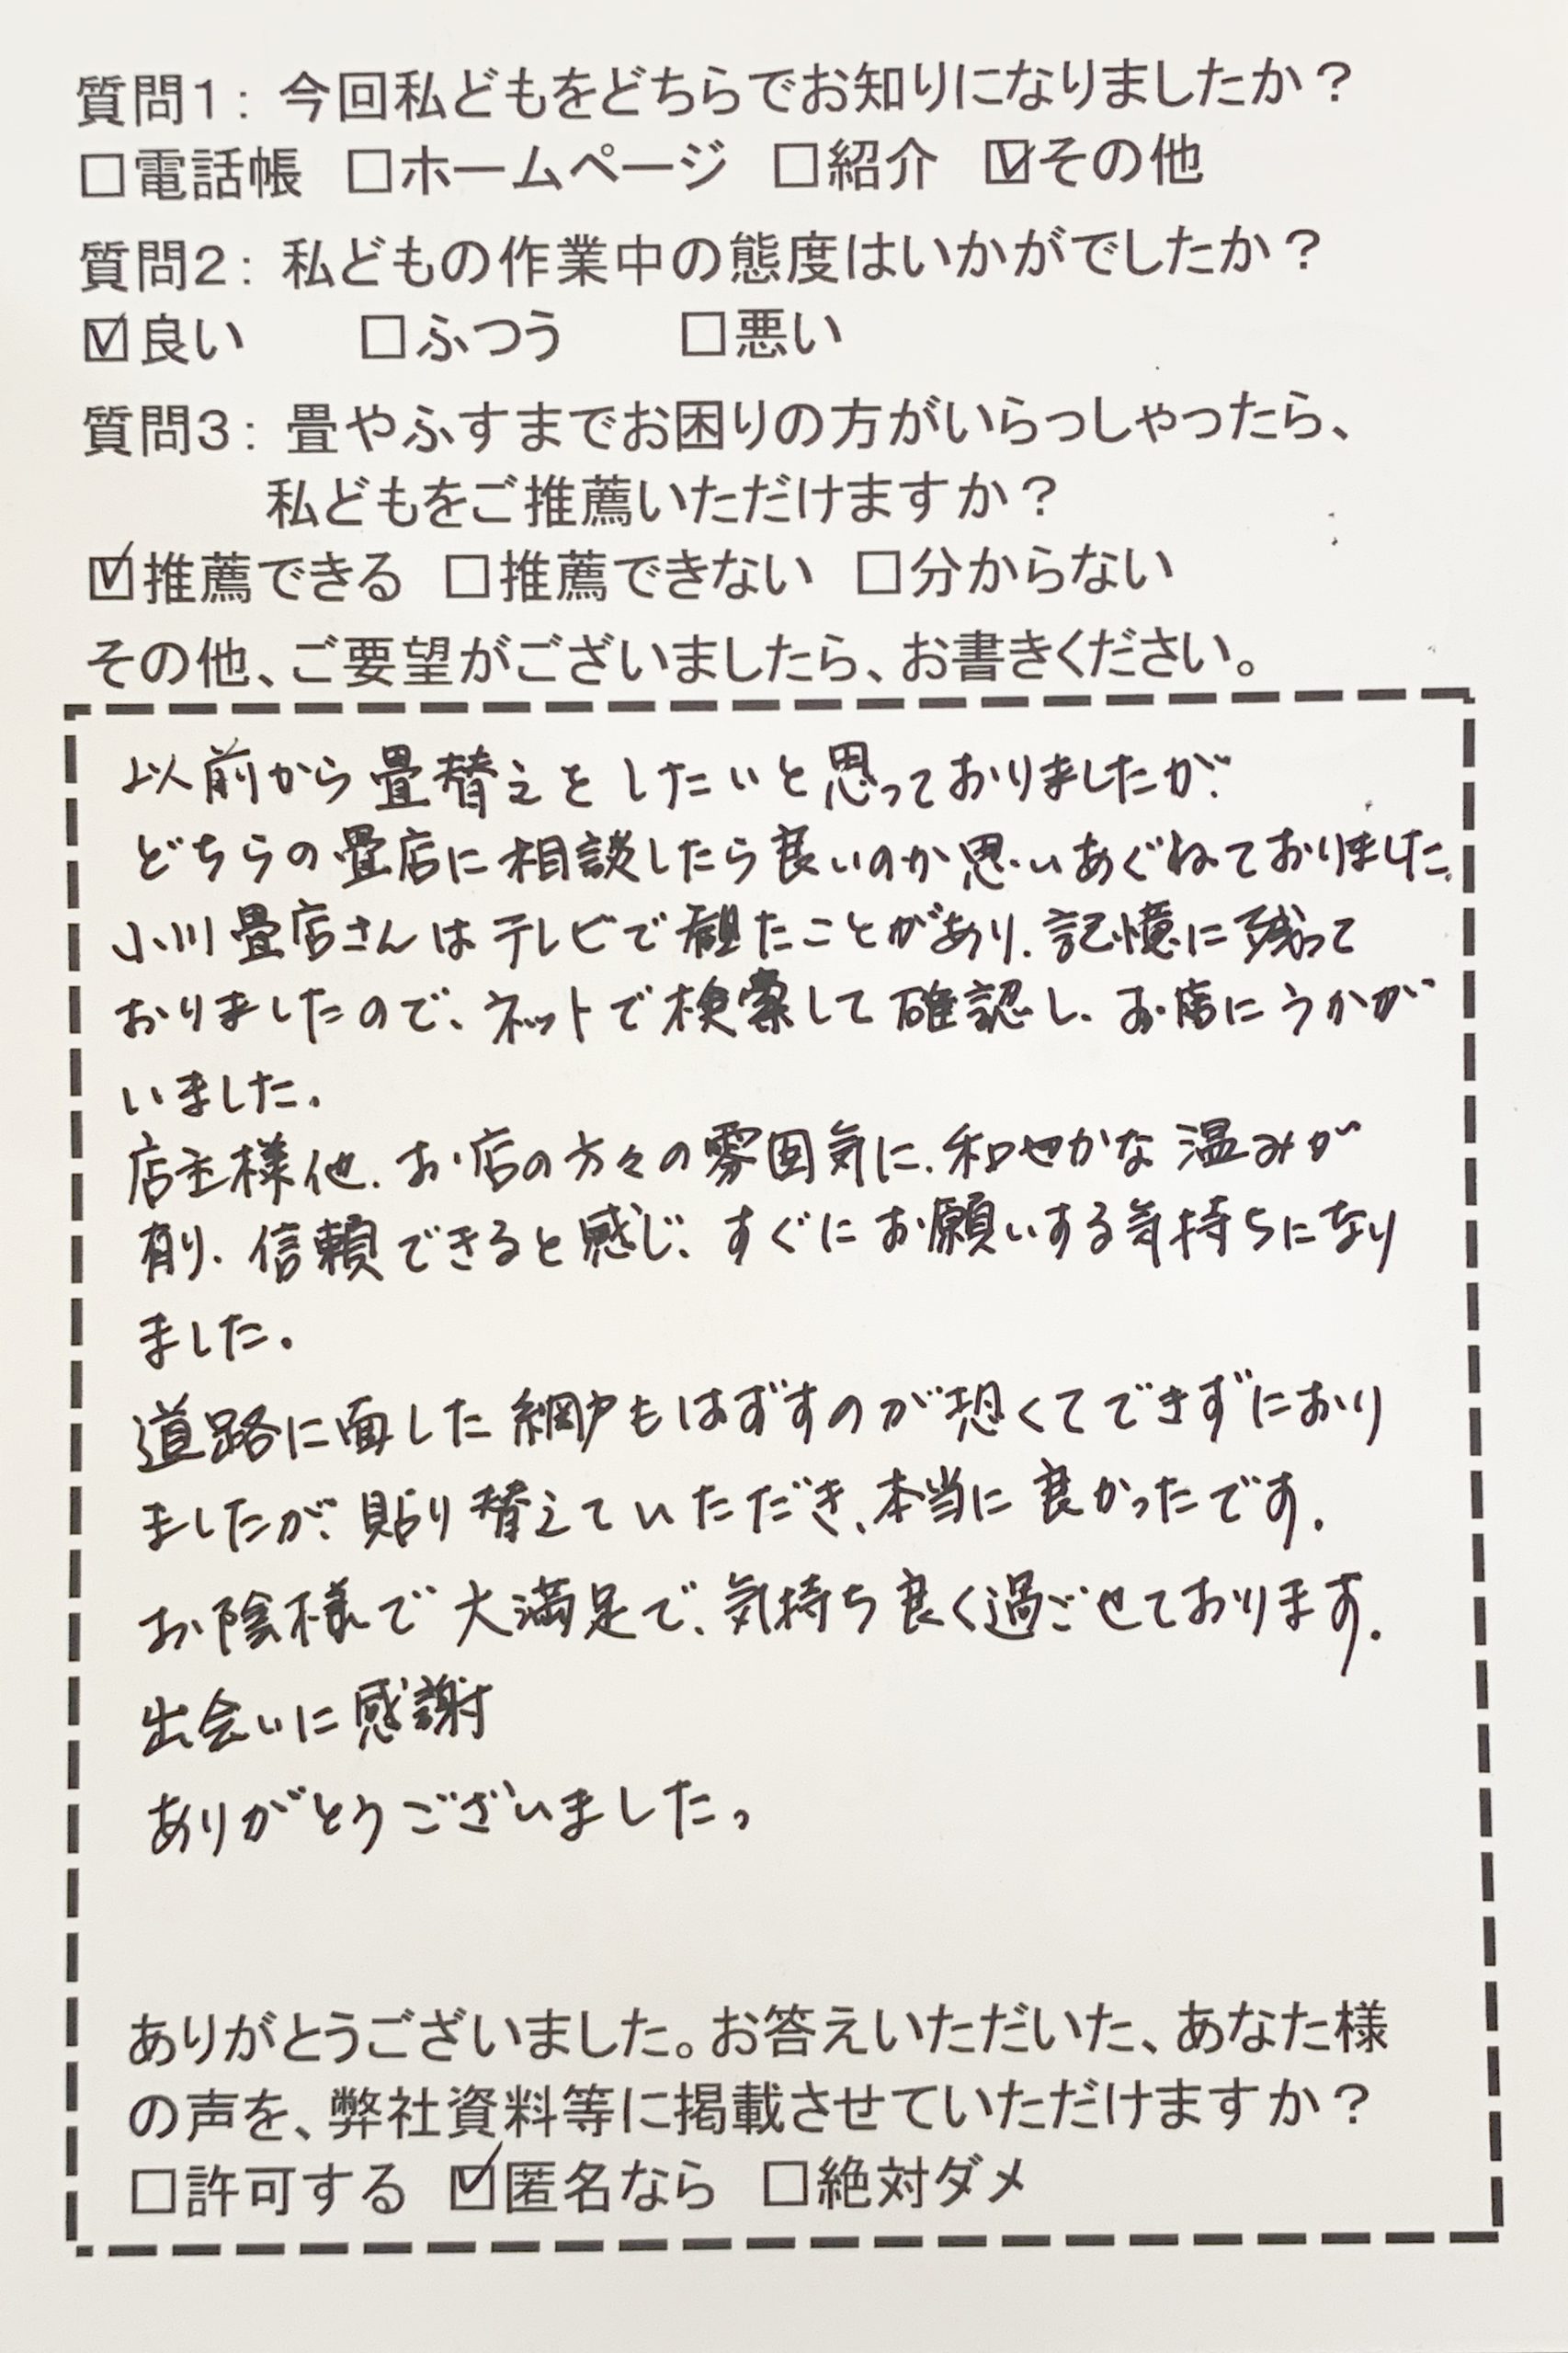 質問1: 今回私どもをどちらでお知りになりましたか？
□電話帳 □ホームページ □紹介 ☑その他
質問2: 私どもの作業中の態度はいかがでしたか？
☑良い □ふつう □悪い
質問3: 畳やふすまでお困りの方がいらっしゃったら、
私どもをご推薦いただけますか？
☑推薦できる □推薦できない □分からない
その他、ご要望がございましたら、お書きください。
以前から畳替えをしたいと思っておりましたが、
どちらの畳店に相談したら良いのか思いあぐねておりました。
小川畳店さんはテレビで観たことがあり、記憶に残って
おりましたので、ネットで検索して確認し、お店にうかが
いました。
店主様他、お店の方々の雰囲気に、和やかな温みが
有り、信頼できると感じ、すぐにお願いする気持ちになり
ました。
道路に面した網戸もはずすのが恐くてできずにおり
ましたが、貼り替えていただき、本当に良かったです。
お陰様で大満足で、気持ち良く過ごせております。
出会いに感謝
ありがとうございました。
ありがとうございました。お答えいただいた、あなた様
の声を、弊社資料等に掲載させていただけますか？
□許可する ☑匿名なら □絶対ダメ